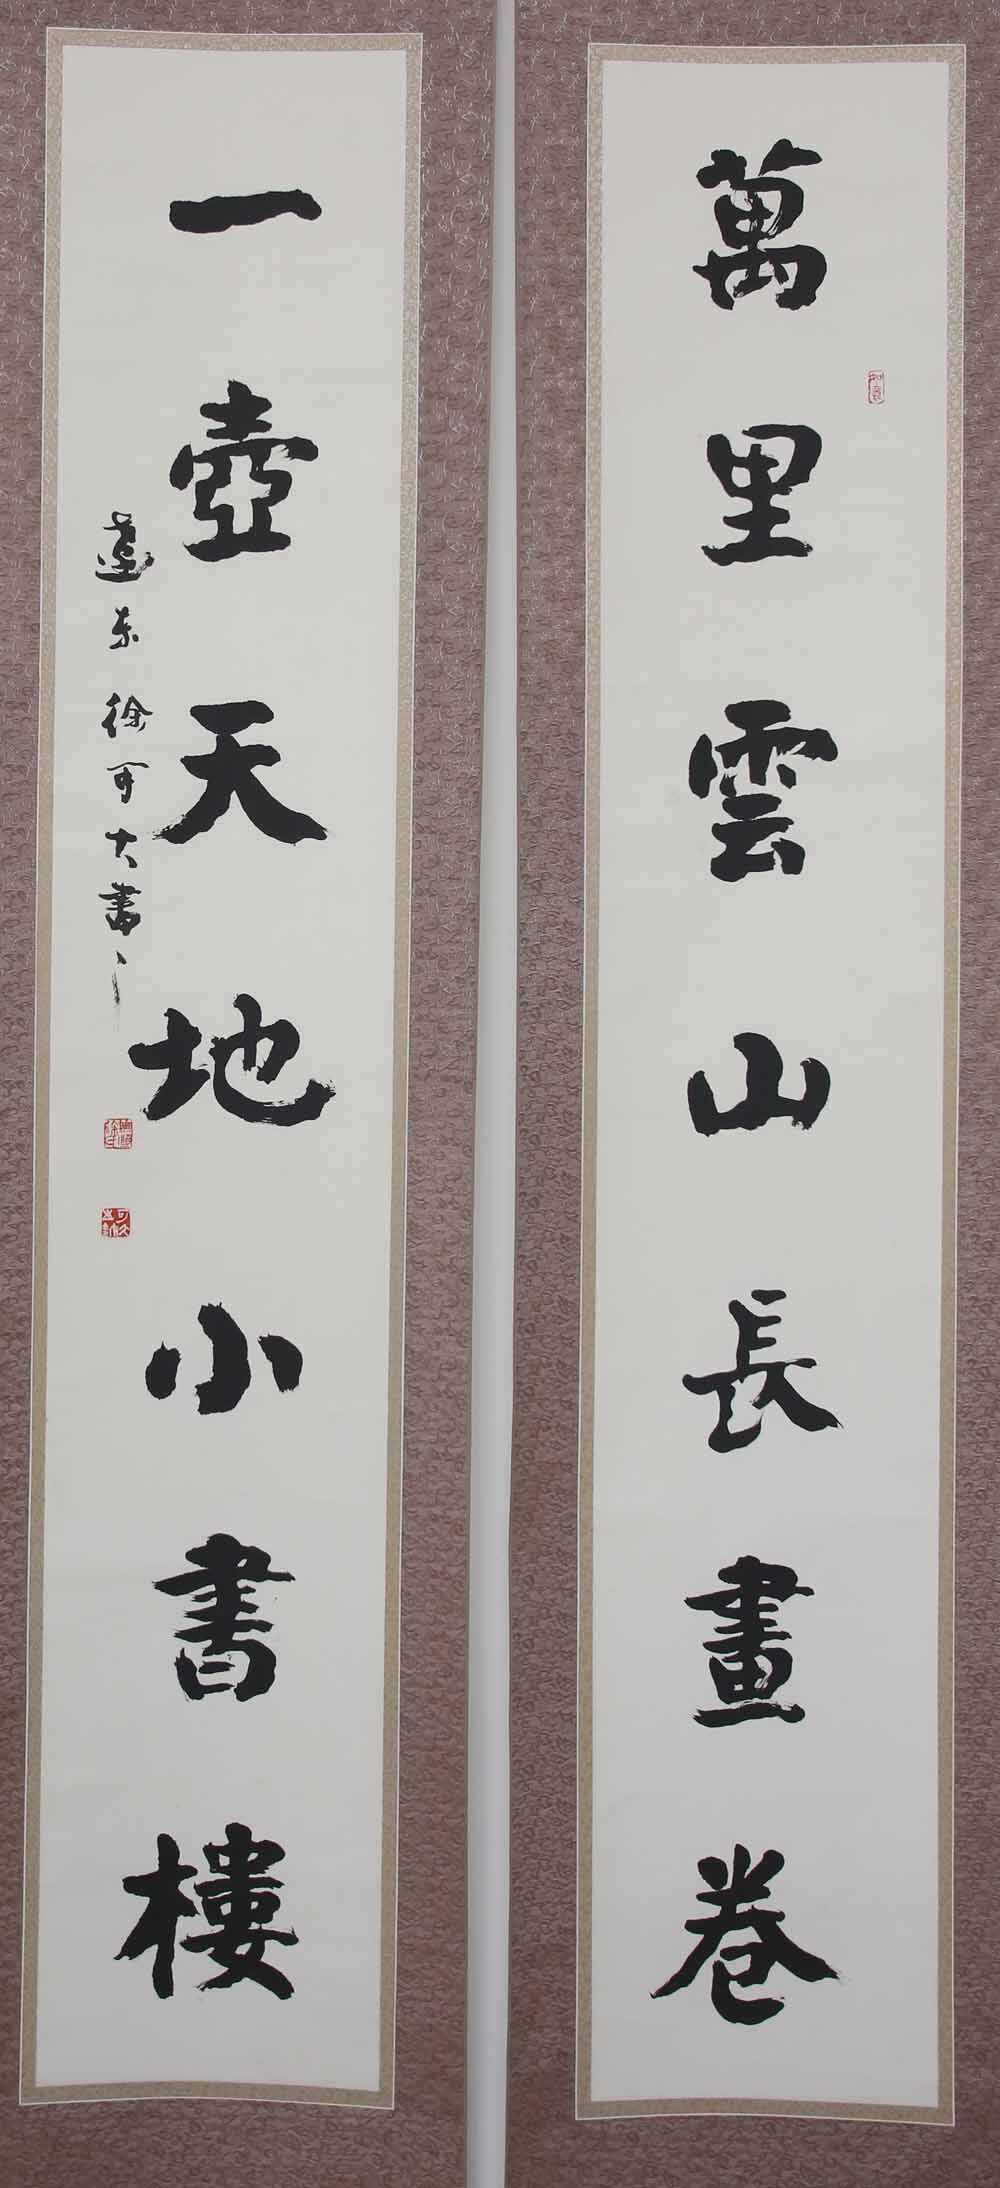 萬里雲山長畫卷
一壺天地小書樓
遼東徐可大書